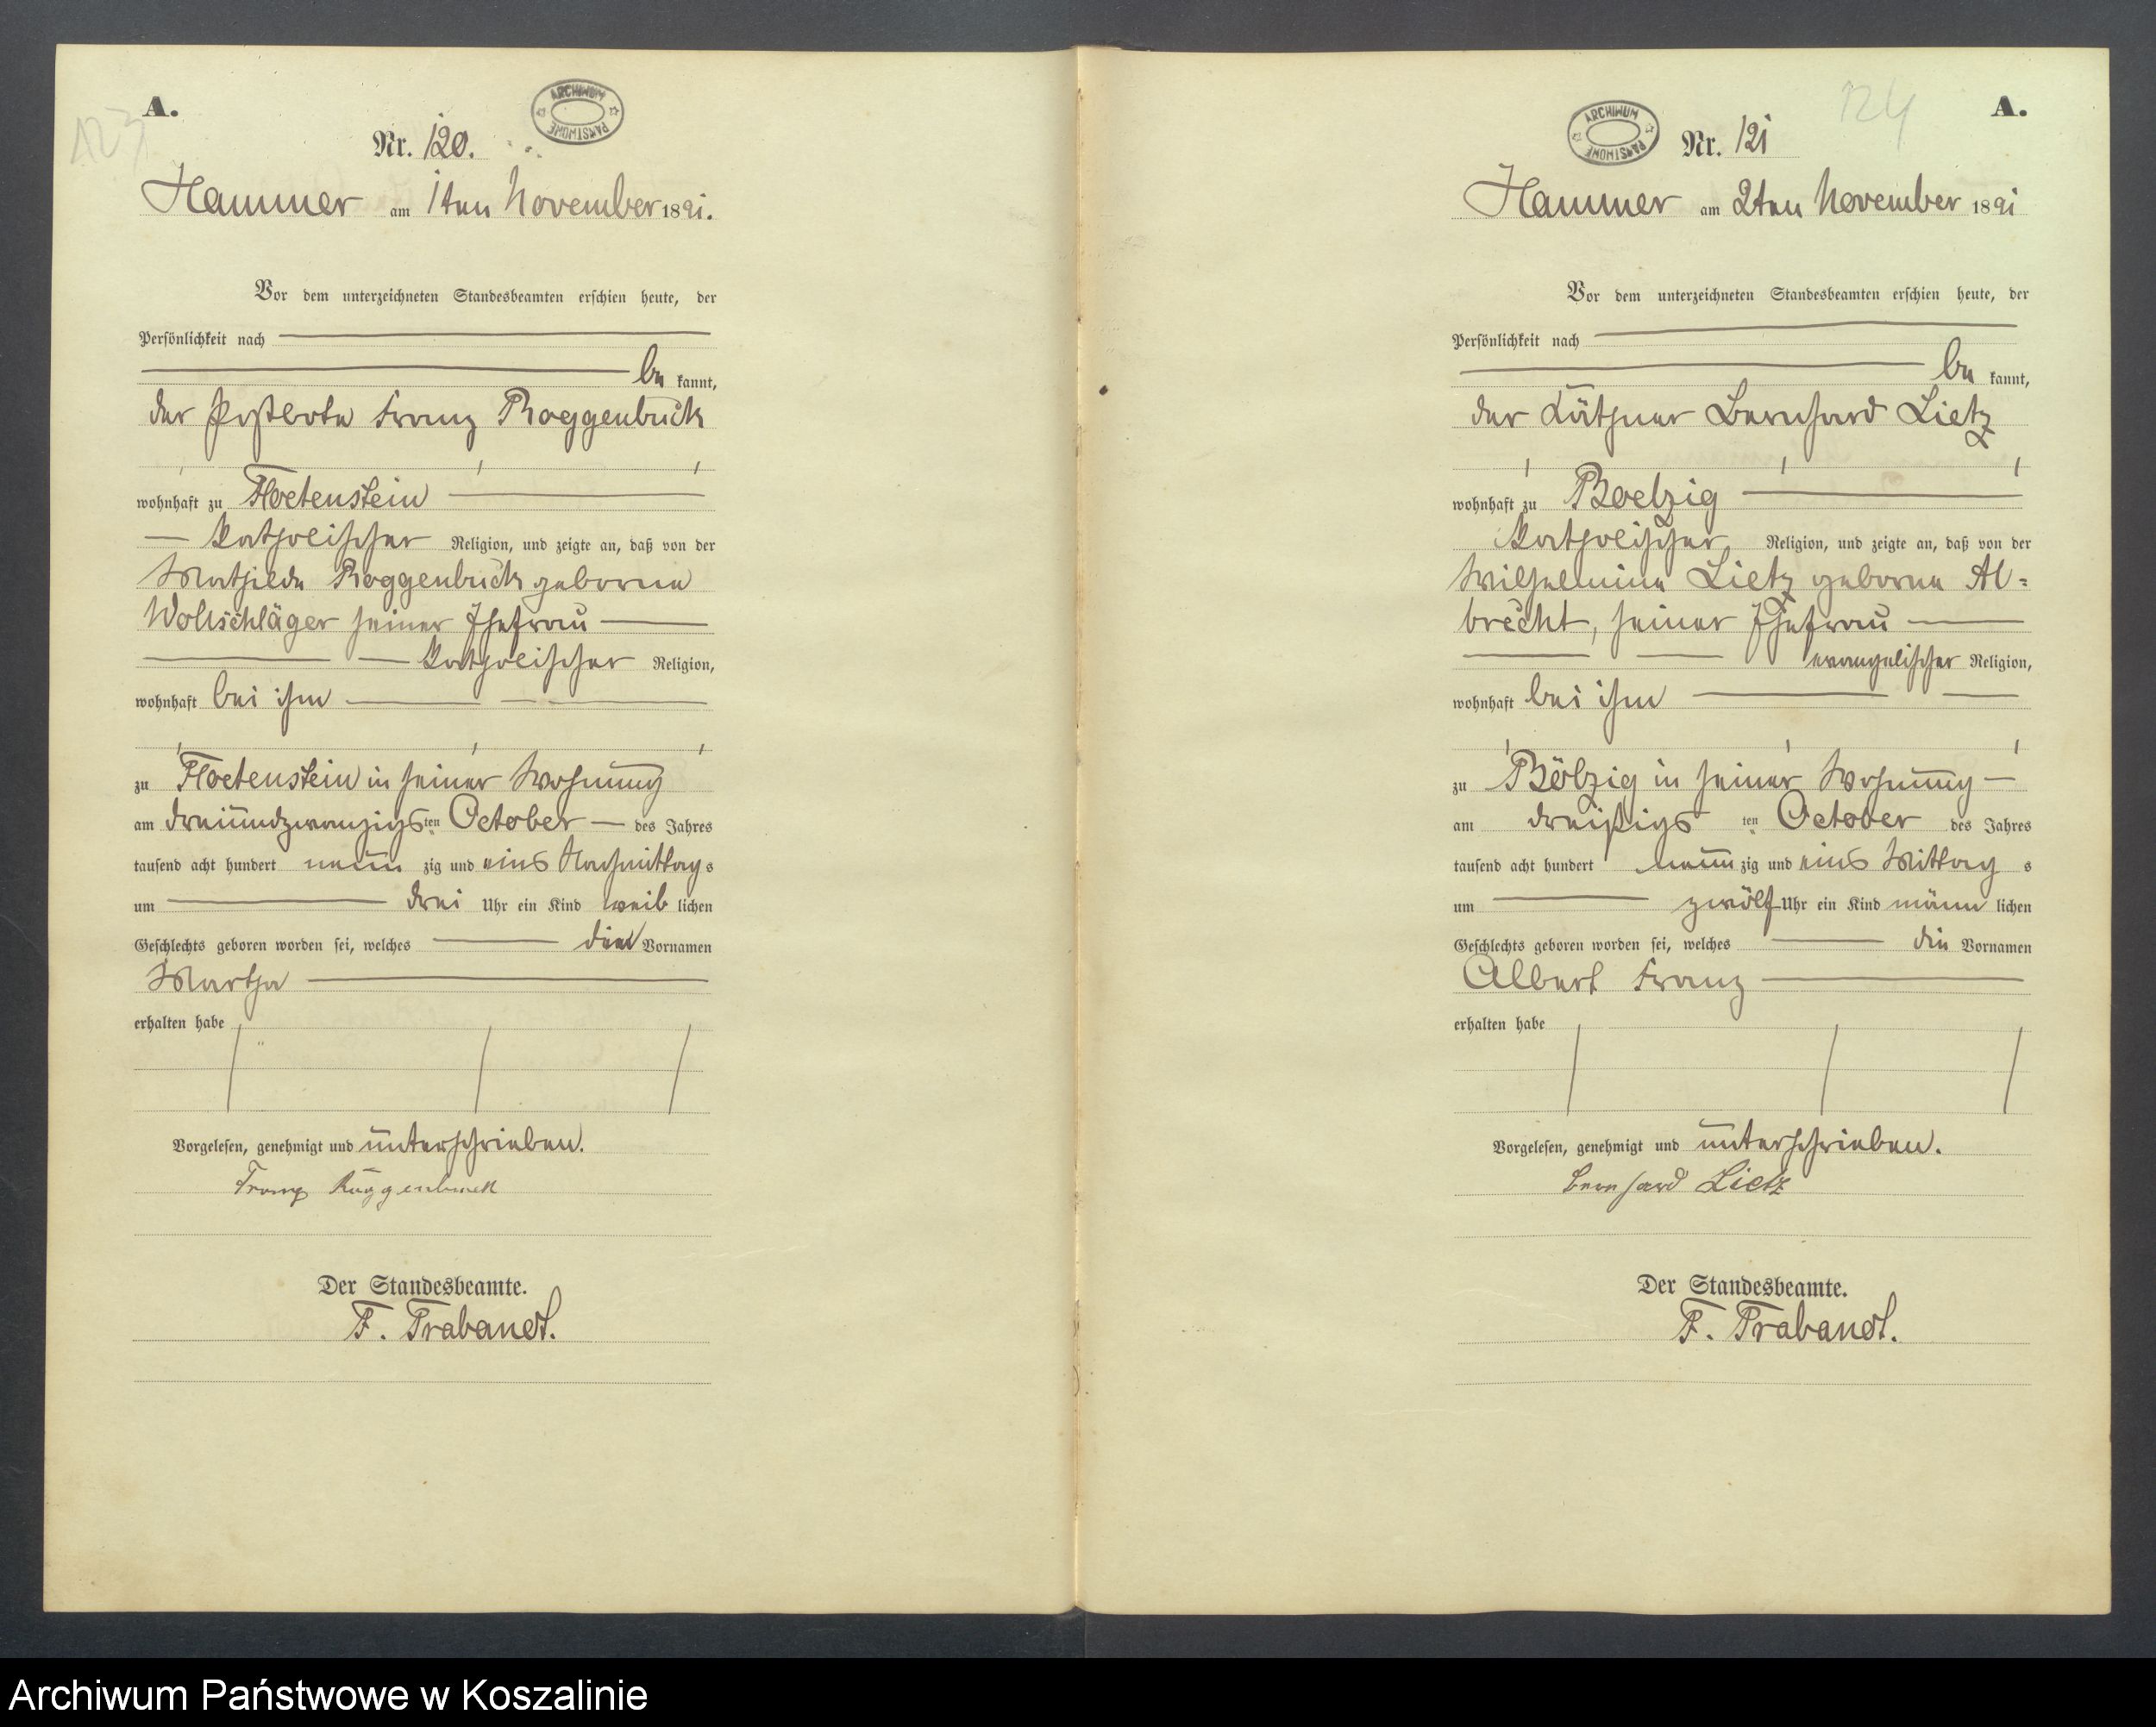 123
A.
ARCHIWUM PAŃSTWOWE
Nr. 120.
Hammer am 1ten November 1891.
Vor dem unterzeichneten Standesbeamten erschien heute, der
Persönlichkeit nach
be kannt,
der Postbote Franz Roggenbuck
wohnhaft zu Floetenstein
katholischer Religion, und zeigte an, daß von der
Mathilde Roggenbuck geborene
Wollschläger seiner Ehefrau
katholischer Religion,
wohnhaft bei ihm
zu Floetenstein in seiner Wohnung
am dreiundzwanzigsten October des Jahres
tausend acht hundert neun zig und eins Nachmittags
um drei Uhr ein Kind weib lichen
Geschlechts geboren worden sei, welches den Vornamen
Martha
erhalten habe
Vorgelesen, genehmigt und unterschrieben.
Franz Roggenbuck
Der Standesbeamte.
F. Trabandt.
124
A.
ARCHIWUM PAŃSTWOWE
Nr. 121
Hammer am 2ten November 1891
Vor dem unterzeichneten Standesbeamten erschien heute, der
Persönlichkeit nach
be kannt,
der Käthner Bernhard Lietz
wohnhaft zu Boelzig
katholischer Religion, und zeigte an, daß von der
Wilhelmine Lietz geborne Al=
brecht, seiner Ehefrau
evangelischer Religion,
wohnhaft bei ihm
zu Bölzig in seiner Wohnung
am dreißigs ten October des Jahres
tausend acht hundert neun zig und eins Mittag s
um zwölf Uhr ein Kind männ lichen
Geschlechts geboren worden sei, welches die Vornamen
Albert Franz
erhalten habe
Vorgelesen, genehmigt und unterschrieben.
Bernhard Lietz
Der Standesbeamte.
F. Trabandt.
Archiwum Państwowe w Koszalinie